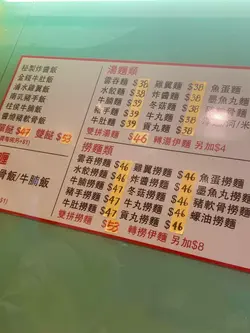 秘製炸醬飯
金錢牛肚飯
滷水雞翼飯
南乳豬手飯
柱侯牛腩飯
醬燒豬軟骨飯
$47 雙餸 $53
骨飯/牛腩飯
湯麵類
雲吞麵 $38 雞翼麵 $38 魚蛋麵
水餃麵 $38 炸醬麵 $38 墨魚丸麵
牛腩麵 $39 冬菇麵 $38
豬手麵 $39 牛丸麵 $38
牛肚麵 $39 貢丸麵 $38
雙拼湯麵 $46 轉湯伊麵 另加$4
撈麵類
雲吞撈麵 $46 雞翼撈麵 $46 魚蛋撈麵
水餃撈麵 $46 炸醬撈麵 $46 墨魚丸撈麵
牛腩撈麵 $47 冬菇撈麵 $46 豬軟骨撈麵
豬手撈麵 $47 牛丸撈麵 $46 蠔油撈麵
牛肚撈麵 $47 貢丸撈麵 $46
雙拼撈麵 轉撈伊麵 另加$8